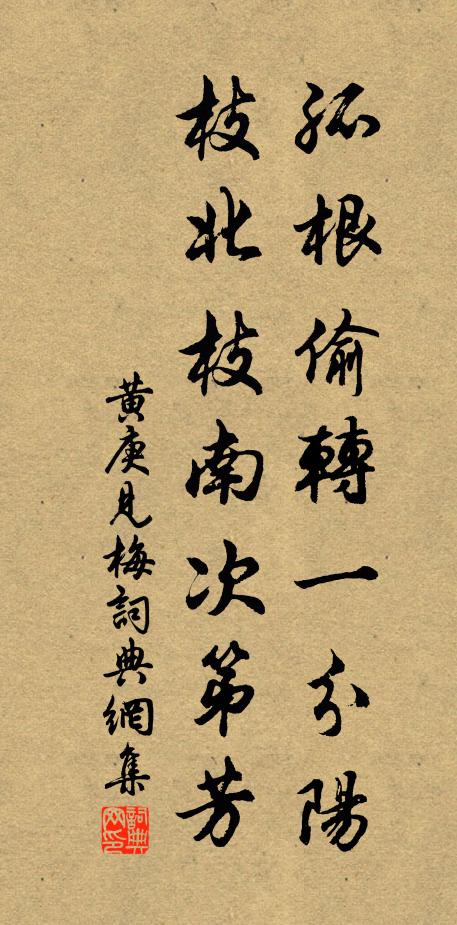 孤根偷轉一分陽
枝北枝南次第芳
黃庚見梅詞典網集
詞典網印